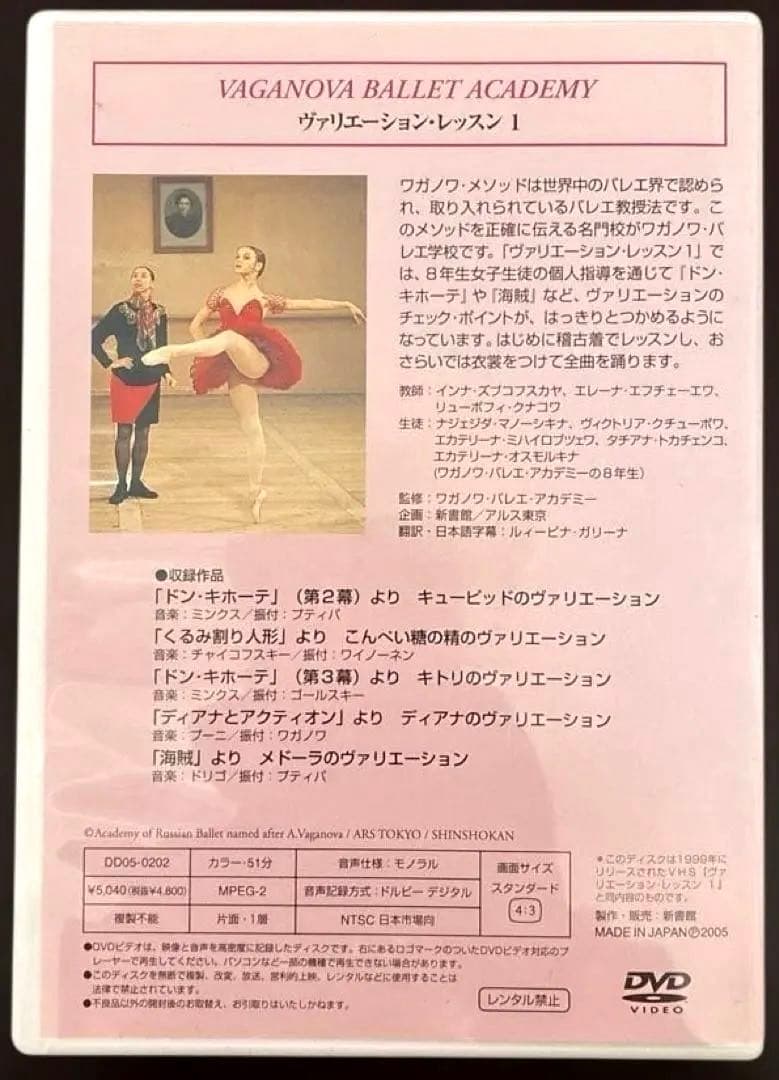 VAGANOVA BALLET ACADEMY
ヴァリエーション・レッスン 1
ワガノワ・メソッドは世界中のバレエ界で認めら
れ、取り入れられているバレエ教授法です。こ
のメソッドを正確に伝える名門校がワガノワ・バ
レエ学校です。「ヴァリエーション・レッスン1」で
は、8年生女子生徒の個人指導を通じて『ドン・
キホーテ』や『海賊』など、ヴァリエーションの
チェック・ポイントが、はっきりとつかめるように
なっています。はじめに稽古着でレッスンし、お
さらいでは衣裳をつけて全曲を踊ります。
教師：インナ・ズブコフスカヤ、エレーナ・エフチェーエワ、
リューボフィ・クナコワ
生徒：ナジェジダ・マノーシキナ、ヴィクトリア・クチューポワ、
エカテリーナ・ミハイロブツェワ、タチアナ・トカチェンコ、
エカテリーナ・オスモルキナ
(ワガノワ・バレエ・アカデミーの8年生)
監修：ワガノワ・バレエ・アカデミー
企画：新書館／アルス東京
翻訳・日本語字幕：ルィービナ・ガリーナ
●収録作品
「ドン・キホーテ」（第2幕）より　キューピッドのヴァリエーション
音楽：ミンクス／振付：プティパ
「くるみ割り人形」より　こんぺい糖の精のヴァリエーション
音楽：チャイコフスキー／振付：ワイノーネン
「ドン・キホーテ」（第3幕）より　キトリのヴァリエーション
音楽：ミンクス／振付：ゴールスキー
「ディアナとアクティオン」より　ディアナのヴァリエーション
音楽：プーニ／振付：ワガノワ
「海賊」より　メドーラのヴァリエーション
音楽：ドリゴ／振付：プティパ
©Academy of Russian Ballet named after A.Vaganova / ARS TOKYO / SHINSHOKAN
DD05-0202 カラー・51分 音声仕様：モノラル
¥5,040(税抜¥4,800) MPEG-2 音声記録方式：ドルビー デジタル
複製不能 片面・1層 NTSC 日本市場向
画面サイズ
スタンダード
4:3
＊このディスクは1999年に
リリースされたVHS『ヴァ
リエーション・レッスン 1』
と同内容のものです。
製作・販売：新書館
MADE IN JAPANⓅ2005
●DVDビデオは、映像と音声を高密度に記録したディスクです。右にあるロゴマークのついたDVDビデオ対応のプ
レーヤーで再生してください。パソコンなど一部の機種で再生できない場合があります。
●このディスクを無断で複製、改変、放送、営利的上映、レンタルなどに使用することは
法律で禁止されています。
●不良品以外の開封後のお取替え、お引取りはいたしかねます。
レンタル禁止
DVD
VIDEO